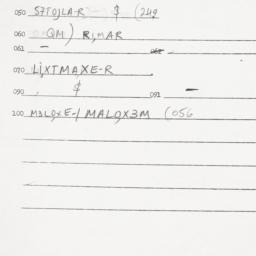 050 S7TOJLA-R $ (249
060 QM) R,MAR
061 —
070 LIXTMAXE-R
090 $ 091 —
100 M3LO,XE-/MALO,X3M (056